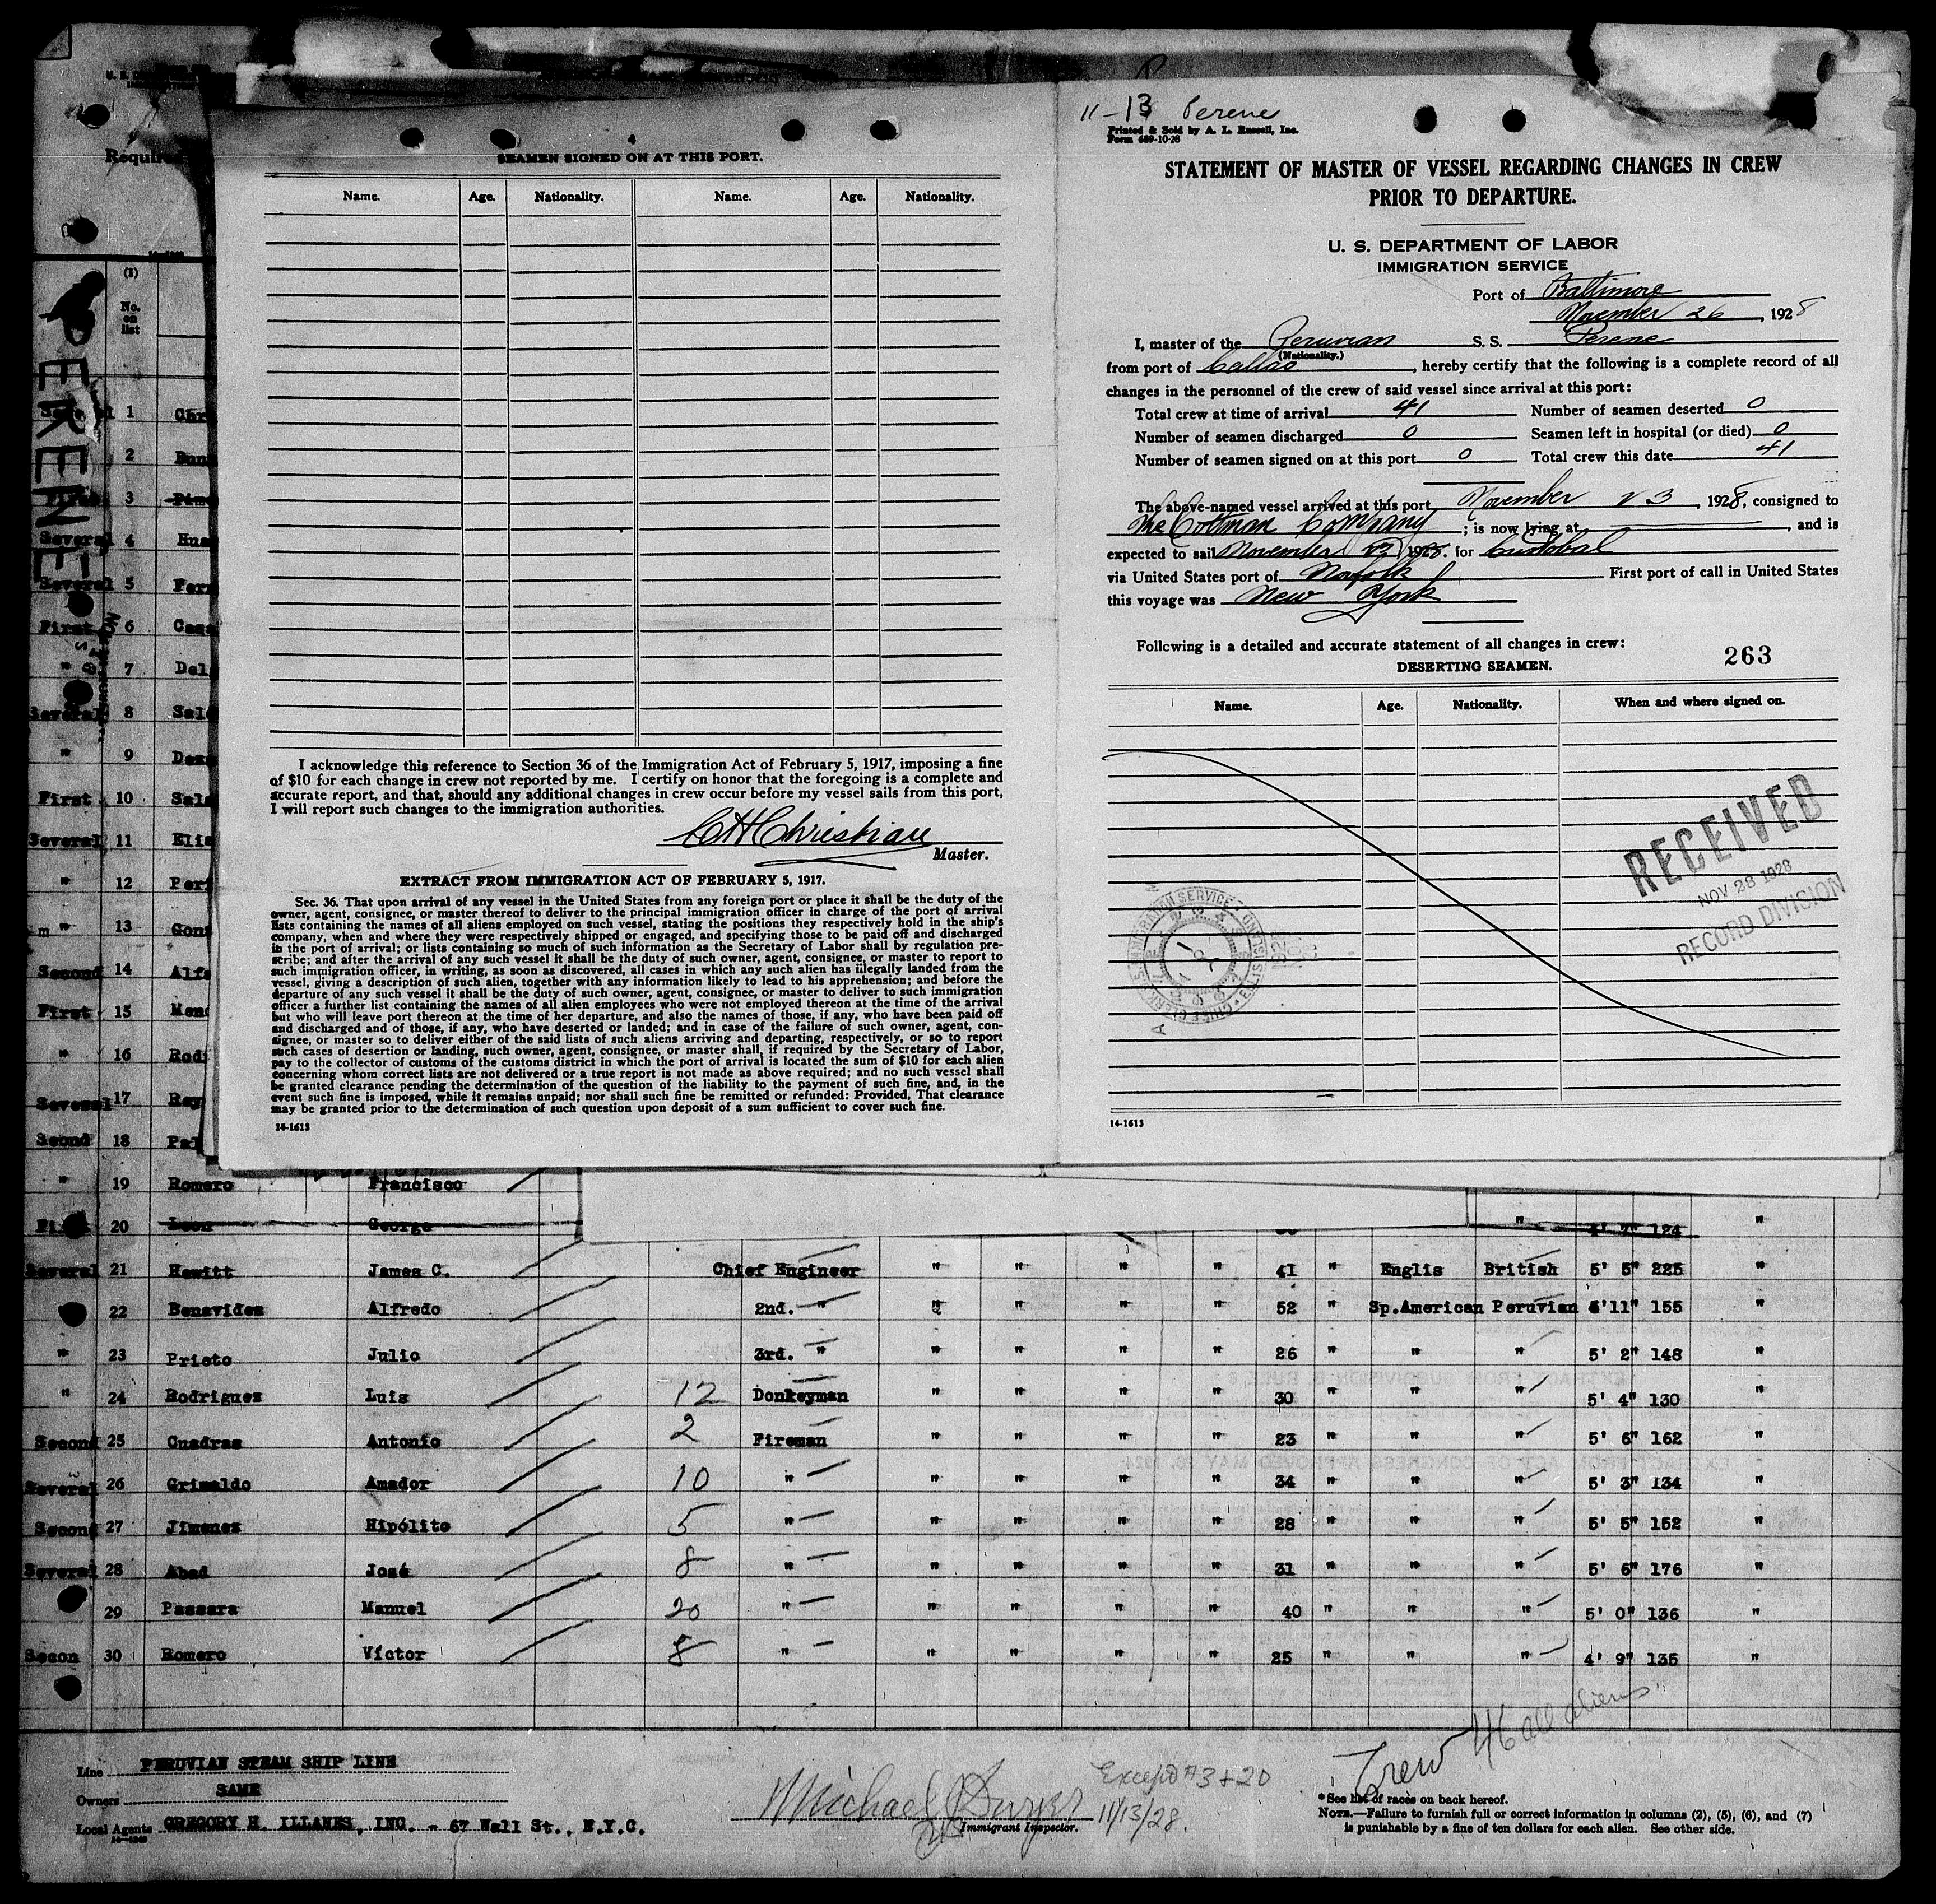 11-13 Perene
Printed & Sold by A. L. Russell, Inc.
Form 689-10-28
STATEMENT OF MASTER OF VESSEL REGARDING CHANGES IN CREW
PRIOR TO DEPARTURE.
U. S. DEPARTMENT OF LABOR
IMMIGRATION SERVICE
Port of Baltimore
November 26, 1928
I, master of the Peruvian S. S. Perene
(Nationality.)
from port of Callao, hereby certify that the following is a complete record of all
changes in the personnel of the crew of said vessel since arrival at this port:
Total crew at time of arrival 41 Number of seamen deserted 0
Number of seamen discharged 0 Seamen left in hospital (or died) 0
Number of seamen signed on at this port 0 Total crew this date 41
The above-named vessel arrived at this port November 23, 1928, consigned to
The Cottman Company; is now lying at , and is
expected to sail November 1928. for Cristobal
via United States port of Norfolk First port of call in United States
this voyage was New York
Following is a detailed and accurate statement of all changes in crew:
263
DESERTING SEAMEN.
Name. Age. Nationality. When and where signed on.
RECEIVED
NOV 28 1928
RECORD DIVISION
14-1613
4
SEAMEN SIGNED ON AT THIS PORT.
Name. Age. Nationality. Name. Age. Nationality.
I acknowledge this reference to Section 36 of the Immigration Act of February 5, 1917, imposing a fine
of $10 for each change in crew not reported by me. I certify on honor that the foregoing is a complete and
accurate report, and that, should any additional changes in crew occur before my vessel sails from this port,
I will report such changes to the immigration authorities.
CH Christian
Master.
EXTRACT FROM IMMIGRATION ACT OF FEBRUARY 5, 1917.
Sec. 36. That upon arrival of any vessel in the United States from any foreign port or place it shall be the duty of the
owner, agent, consignee, or master thereof to deliver to the principal immigration officer in charge of the port of arrival
lists containing the names of all aliens employed on such vessel, stating the positions they respectively hold in the ship's
company, when and where they were respectively shipped or engaged, and specifying those to be paid off and discharged
in the port of arrival; or lists containing so much of such information as the Secretary of Labor shall by regulation pre-
scribe; and after the arrival of any such vessel it shall be the duty of such owner, agent, consignee, or master to report to
such immigration officer, in writing, as soon as discovered, all cases in which any such alien has illegally landed from the
vessel, giving a description of such alien, together with any information likely to lead to his apprehension; and before the
departure of any such vessel it shall be the duty of such owner, agent, consignee, or master to deliver to such immigration
officer a further list containing the names of all alien employees who were not employed thereon at the time of the arrival
but who will leave port thereon at the time of her departure, and also the names of those, if any, who have been paid off
and discharged and of those, if any, who have deserted or landed; and in case of the failure of such owner, agent, con-
signee, or master so to deliver either of the said lists of such aliens arriving and departing, respectively, or so to report
such cases of desertion or landing, such owner, agent, consignee, or master shall, if required by the Secretary of Labor,
pay to the collector of customs of the customs district in which the port of arrival is located the sum of $10 for each alien
concerning whom correct lists are not delivered or a true report is not made as above required; and no such vessel shall
be granted clearance pending the determination of the question of the liability to the payment of such fine, and, in the
event such fine is imposed, while it remains unpaid; nor shall such fine be remitted or refunded: Provided, That clearance
may be granted prior to the determination of such question upon deposit of a sum sufficient to cover such fine.
14-1613
PERENE
(1)
No.
on
list
Several 1 Chr
2
First 3
Several 4 Hus
Several 5 Ferr
First 6 Casa
" 7 Del
Several 8 Sal
" 9
First 10 Sala
Several 11 Elis
" 12 Per
" 13 Gon
Second 14 Alf
First 15 Men
" 16 Rod
Several 17 Rey
Second 18 Pal
" 19 Romero Francisco
First 20 Leon George " 4' 7" 124 "
Several 21 Hewitt James C. Chief Engineer " " " " 41 " Englis British 5' 5" 225 "
22 Benavides Alfredo 2nd. " " " " " 52 " Sp.American Peruvian 5'11" 155 "
" 23 Prieto Julio 3rd. " " " " " 26 " " " 5' 2" 148 "
" 24 Rodriguez Luis 12 Donkeyman " " " " 30 " " " 5' 4" 130 "
Second 25 Cuadras Antonio 2 Fireman " " " " 23 " " " 5' 6" 162 "
Several 26 Grimaldo Amador 10 " " " " " 34 " " " 5' 3" 134 "
Second 27 Jimenez Hipólito 5 " " " " " 28 " " " 5' 5" 152 "
Several 28 Abad José 8 " " " " " 31 " " " 5' 6" 176 "
29 Passara Manuel 20 " " " " " 40 " " " 5' 0" 136 "
Secon 30 Romero Víctor 8 " " " " " 25 " " " 4' 9" 135 "
Crew 46 all aliens
Line PERUVIAN STEAM SHIP LINE
Owners SAME
Local Agents GREGORY H. ILLANES, INC. - 67 Wall St., N.Y.C.
Michael Dwyer
Immigrant Inspector.
Except #3+20
11/13/28.
* See list of races on back hereof.
NOTE.—Failure to furnish full or correct information in columns (2), (5), (6), and (7)
is punishable by a fine of ten dollars for each alien. See other side.